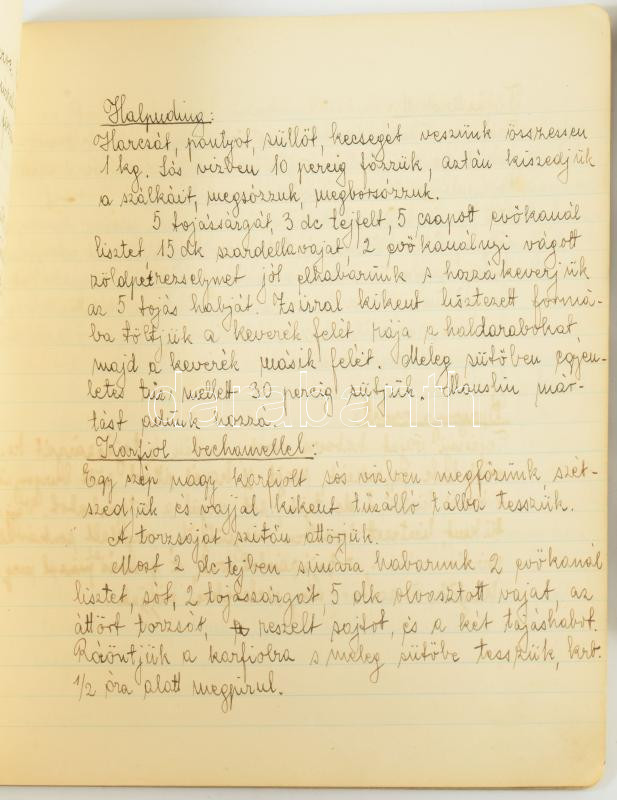 Halpuding:
Harcsát, pontyot, süllőt, kecsegét veszünk összesen
1 kg. Sós vizben 10 percig főzzük, aztán kiszedjük
a szálkáit, megsózzuk, megborsózzuk.
5 tojássárgát, 3 dc tejfelt, 5 csapott evőkanál
lisztet 15 dk szardellavajat 2 evőkanálnyi vágott
zöldpetrezselymet jól elhabarunk s hozzákeverjük
az 5 tojás habját. Zsirral kikent lisztezett formá-
ba töltjük a keverék felét rája a haldarabokat,
majd a keverék másik felét. Meleg sütőben egyen-
letes tűz mellett 30 percig sütjük. Mouslin már-
tást adunk hozzá.
Karfiol bechamellel:
Egy szép nagy karfiolt sós vizben megfőzünk, szét-
szedjük és vajjal kikent tűzálló tálba tesszük.
A torzsáját szitán áttörjük.
Most 2 dc tejben simára habarunk 2 evőkanál
lisztet, sót, 2 tojássárgát, 5 dk olvasztott vajat, az
áttört torzsát, reszelt sajtot, és a két tojáshabot.
Ráöntjük a karfiolra s meleg sütőbe tesszük, krb.
1/2 óra alatt megpirul.
darabanth